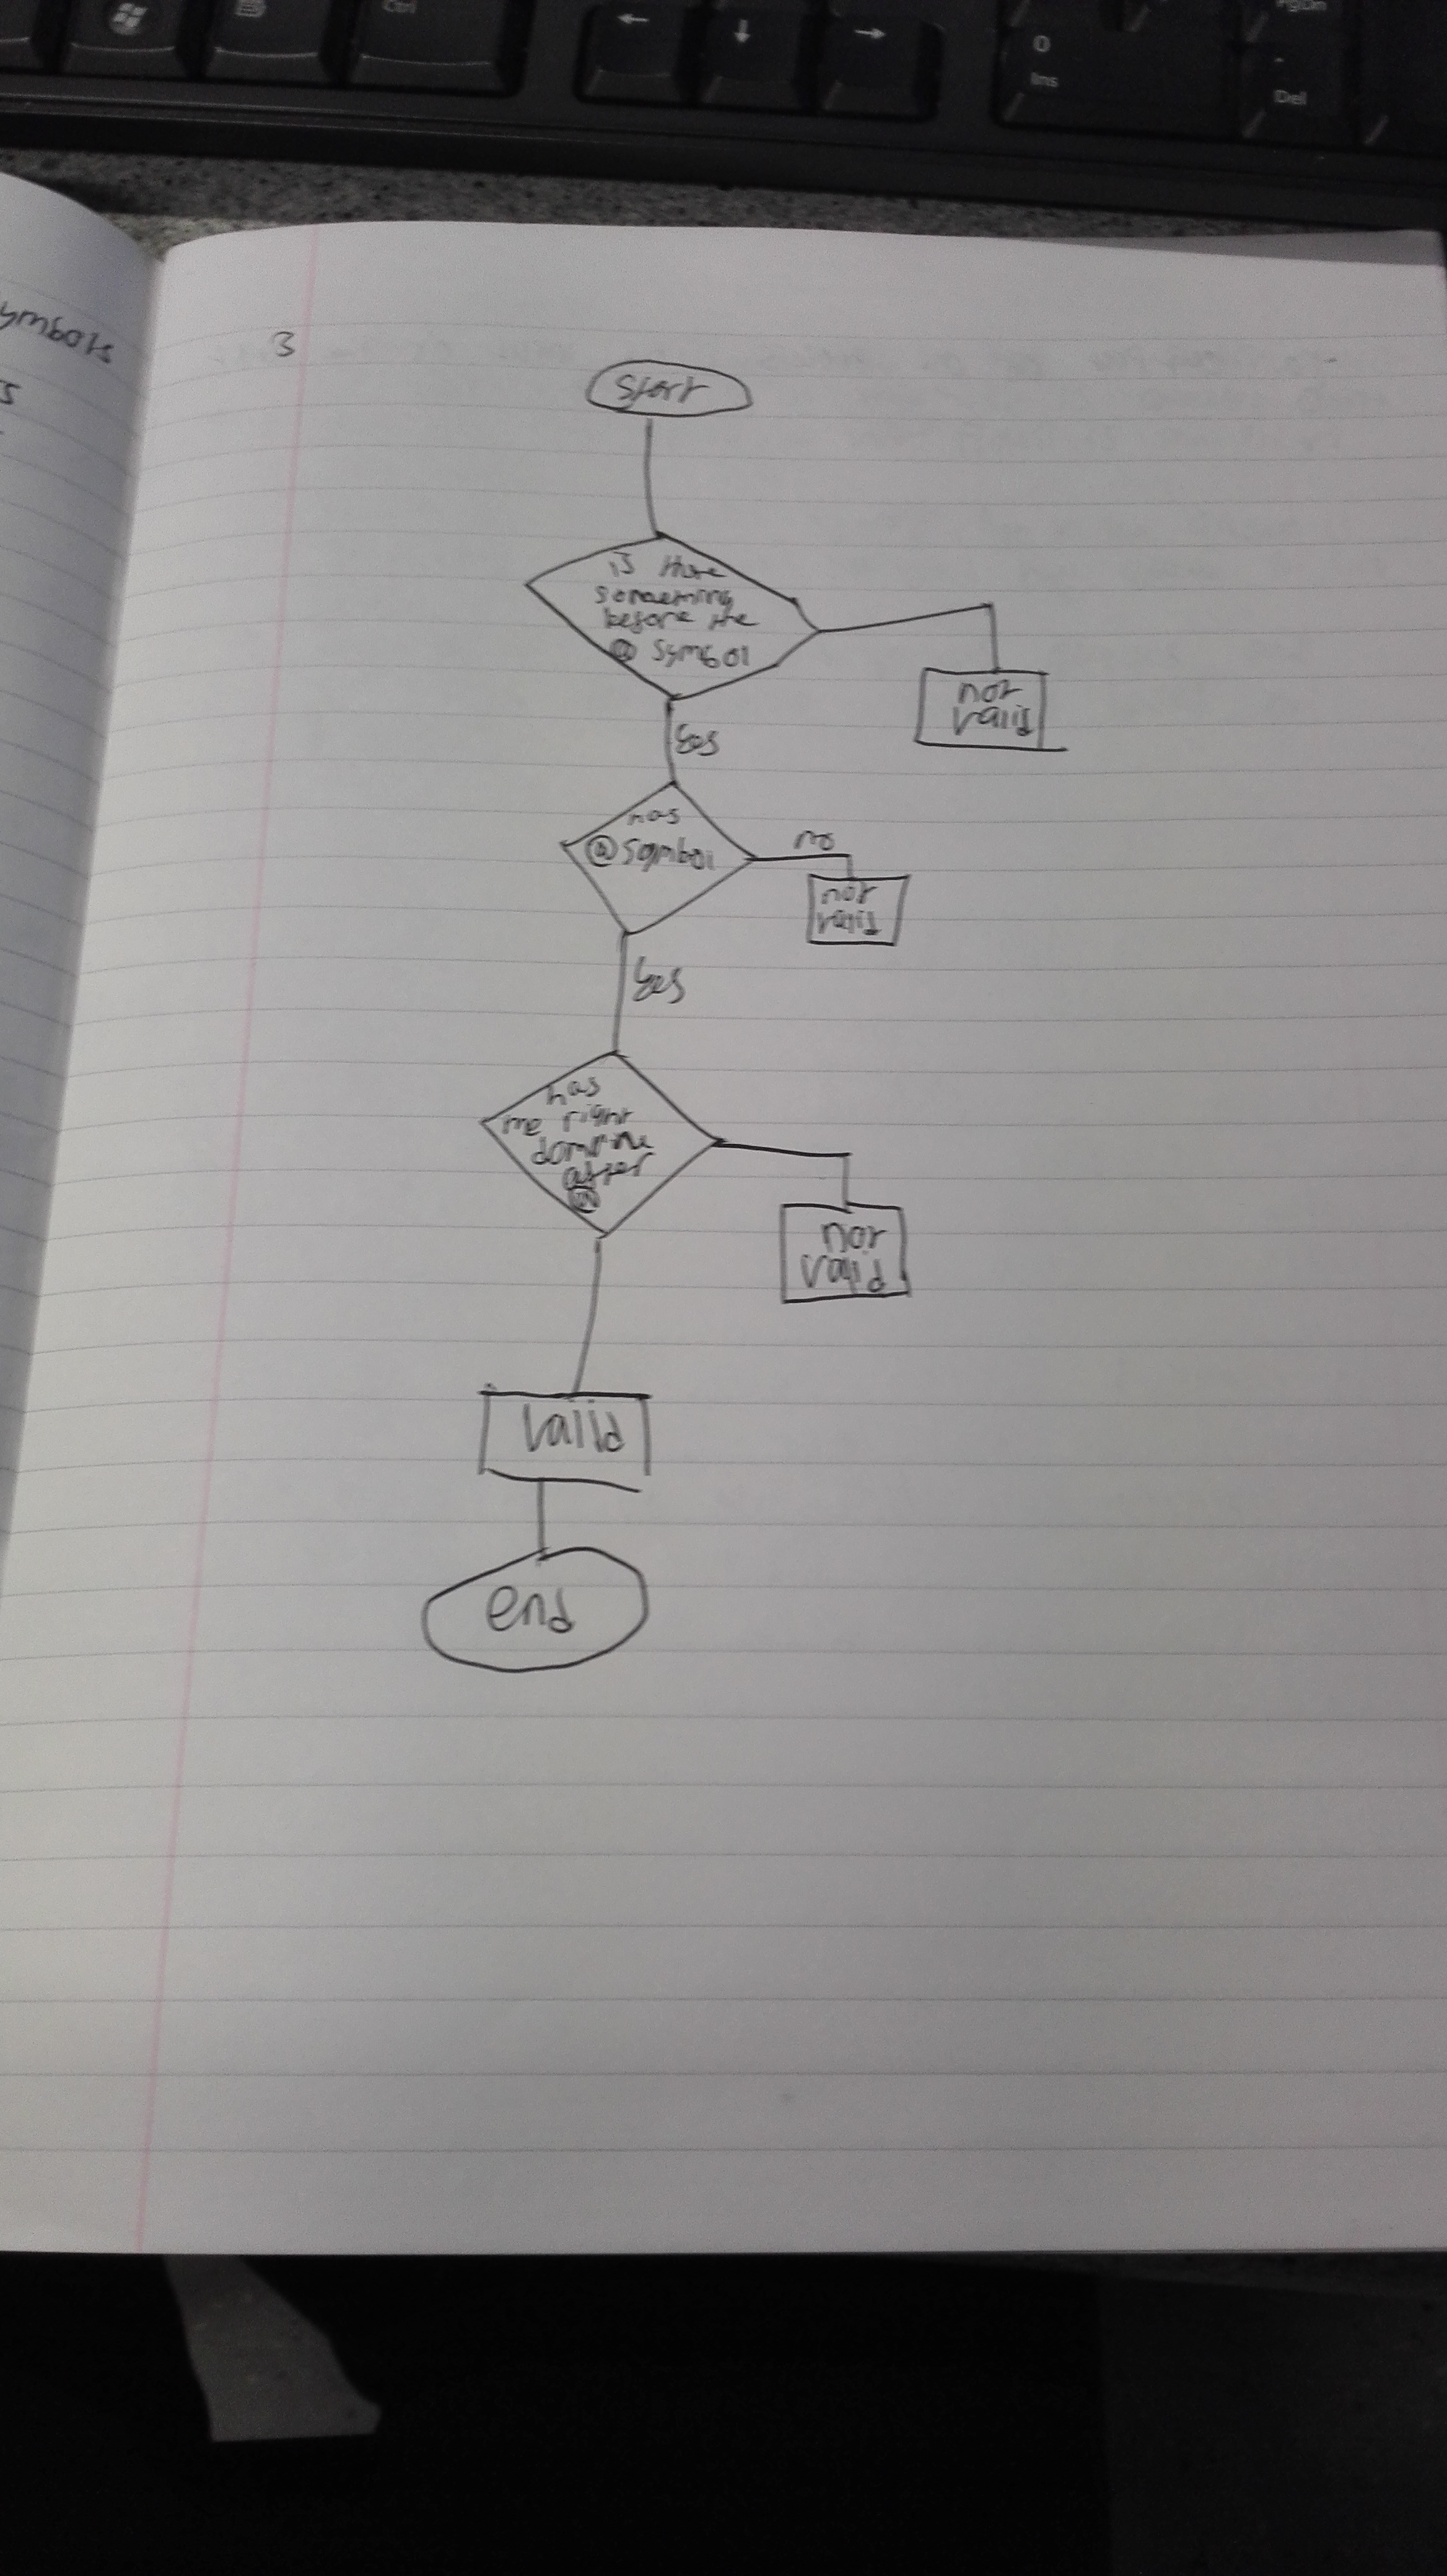 Ctrl
PgDn
←
↓
→
0
Ins
.
Del
ymbols
s
3
Start
is there
something
before the
@ symbol
not
valid
yes
has
@ symbol
no
not
valid
yes
has
the right
after
@
not
valid
valid
end